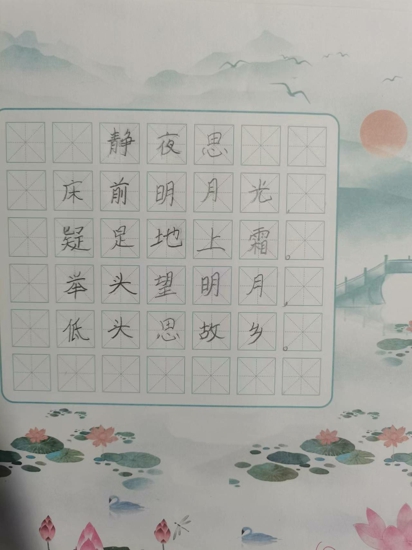 静夜思
床前明月光，
疑足地上霜。
举头望明月，
低头思故乡。